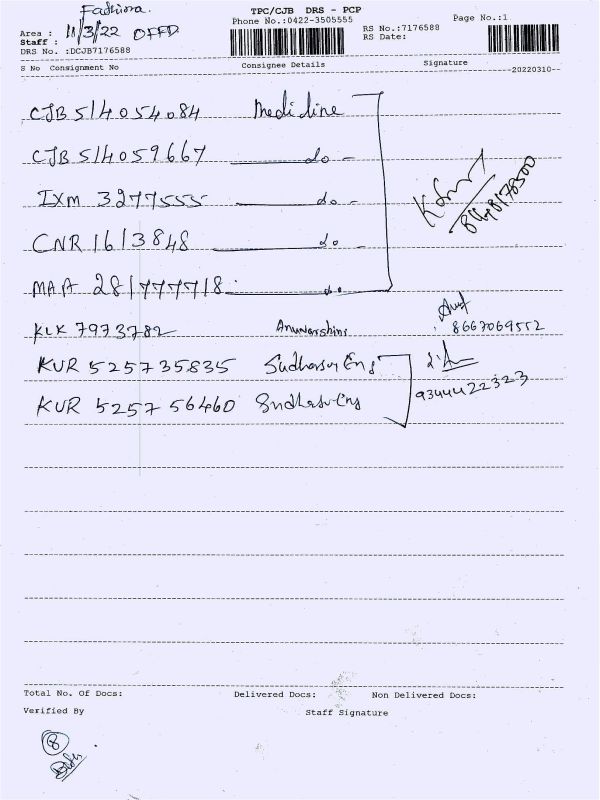 TPC/CJB DRS - PCP
Phone No.:0422-3505555
Page No.:1
Area :
11/3/22
RS No.:7176588
RS Date:
Staff :
DRS No. :DCJB7176588
S No Consignment No Consignee Details Signature
--20220310--
CJB 514054084
CJB 514059667 do -
IXM 3277555 do -
CNR 1613848 do
MAA 281777718 do
KLK 7973782
8667069552
KUR 525735835 Eng
9344422323
KUR 525756460 Eng
Total No. Of Docs: Delivered Docs: Non Delivered Docs:
Verified By Staff Signature
8